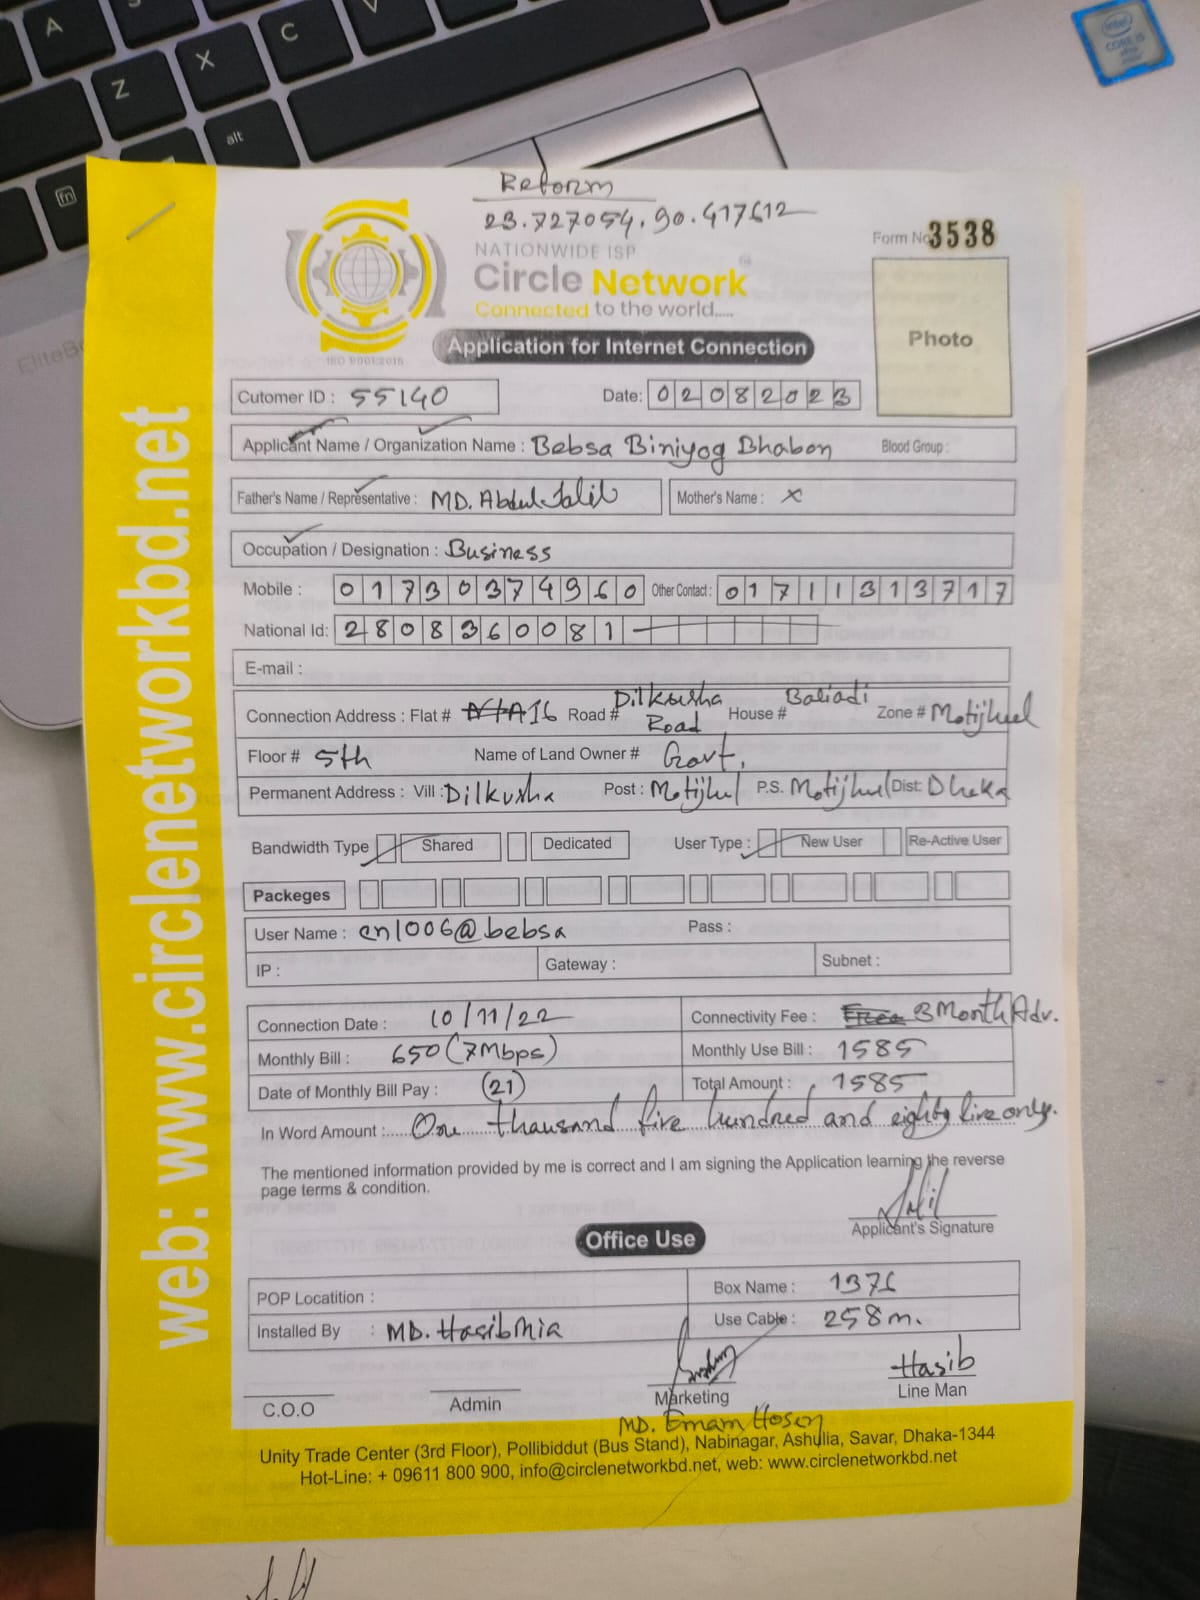 A
S
V
Z
X
C
alt
fn
EliteB
intel
CORE i5
vPro
Reform
23.727054, 90.417612
NATIONWIDE ISP
Circle Network
Connected to the world.....
ISO 9001:2015
Form No 3538
Photo
Application for Internet Connection
Cutomer ID : 55140 Date: 02082023
Applicant Name / Organization Name : Bebsa Biniyog Bhabon Blood Group :
Father's Name / Representative : MD. Abdul Jalil Mother's Name : x
Occupation / Designation : Business
Mobile : 01730374960 Other Contact : 01711313717
National Id: 2808360081
E-mail :
Connection Address : Flat # 16 Road # Dilkusha Road House # Baliadi Zone # Motijheel
Floor # 5th Name of Land Owner # Govt.
Permanent Address : Vill : Dilkusha Post : Motijhel P.S. Motijheel Dist: Dhaka
Bandwidth Type Shared Dedicated User Type : New User Re-Active User
Packeges
User Name : cn1006@bebsa Pass :
IP : Gateway : Subnet :
Connection Date : 10/11/22 Connectivity Fee : Free 3 Month Adv.
Monthly Bill : 650 (7Mbps) Monthly Use Bill : 1585
Date of Monthly Bill Pay : (21) Total Amount : 1585
In Word Amount :..... One thausand five hundred and eighty five only.
The mentioned information provided by me is correct and I am signing the Application learning the reverse
page terms & condition.
Jalil
Applicant's Signature
Office Use
POP Locatition : Box Name : 1376
Installed By : MD. Hasib Mia Use Cable : 258m.
Hasib
C.O.O Admin Marketing Line Man
MD. Emam Hosen
Unity Trade Center (3rd Floor), Pollibiddut (Bus Stand), Nabinagar, Ashulia, Savar, Dhaka-1344
Hot-Line: + 09611 800 900, info@circlenetworkbd.net, web: www.circlenetworkbd.net
web: www.circlenetworkbd.net